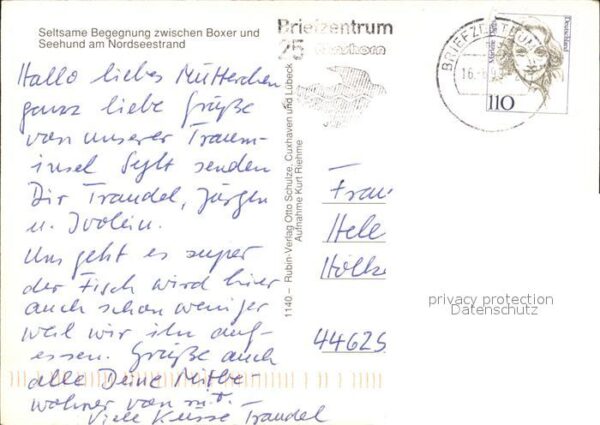 Seltsame Begegnung zwischen Boxer und
Seehund am Nordseestrand
Hallo liebes Mütterchen
ganz liebe Grüße
von unserer Traum-
insel Sylt senden
Dir Traudel, Jürgen
u.
Uns geht es super
der Fisch wird hier
auch schon weniger
weil wir ihn auf-
essen. Grüße auch
alle Deine Mitbe-
wohner von mir.
Viele Küsse Traudel
1140 – Rubin-Verlag Otto Schulze, Cuxhaven und Lübeck
Aufnahme Kurt Riehme
Briefzentrum
25
BRIEFZENTRUM
16.
Deutschland
110
Frau
Hele
Holke
44625
privacy protection
Datenschutz